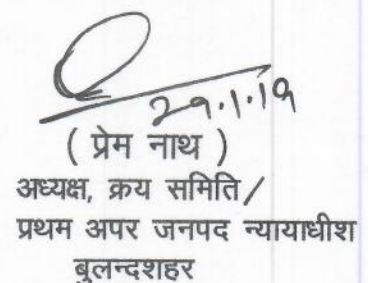 29.1.19
( प्रेम नाथ )
अध्यक्ष, क्रय समिति/
प्रथम अपर जनपद न्यायाधीश
बुलन्दशहर